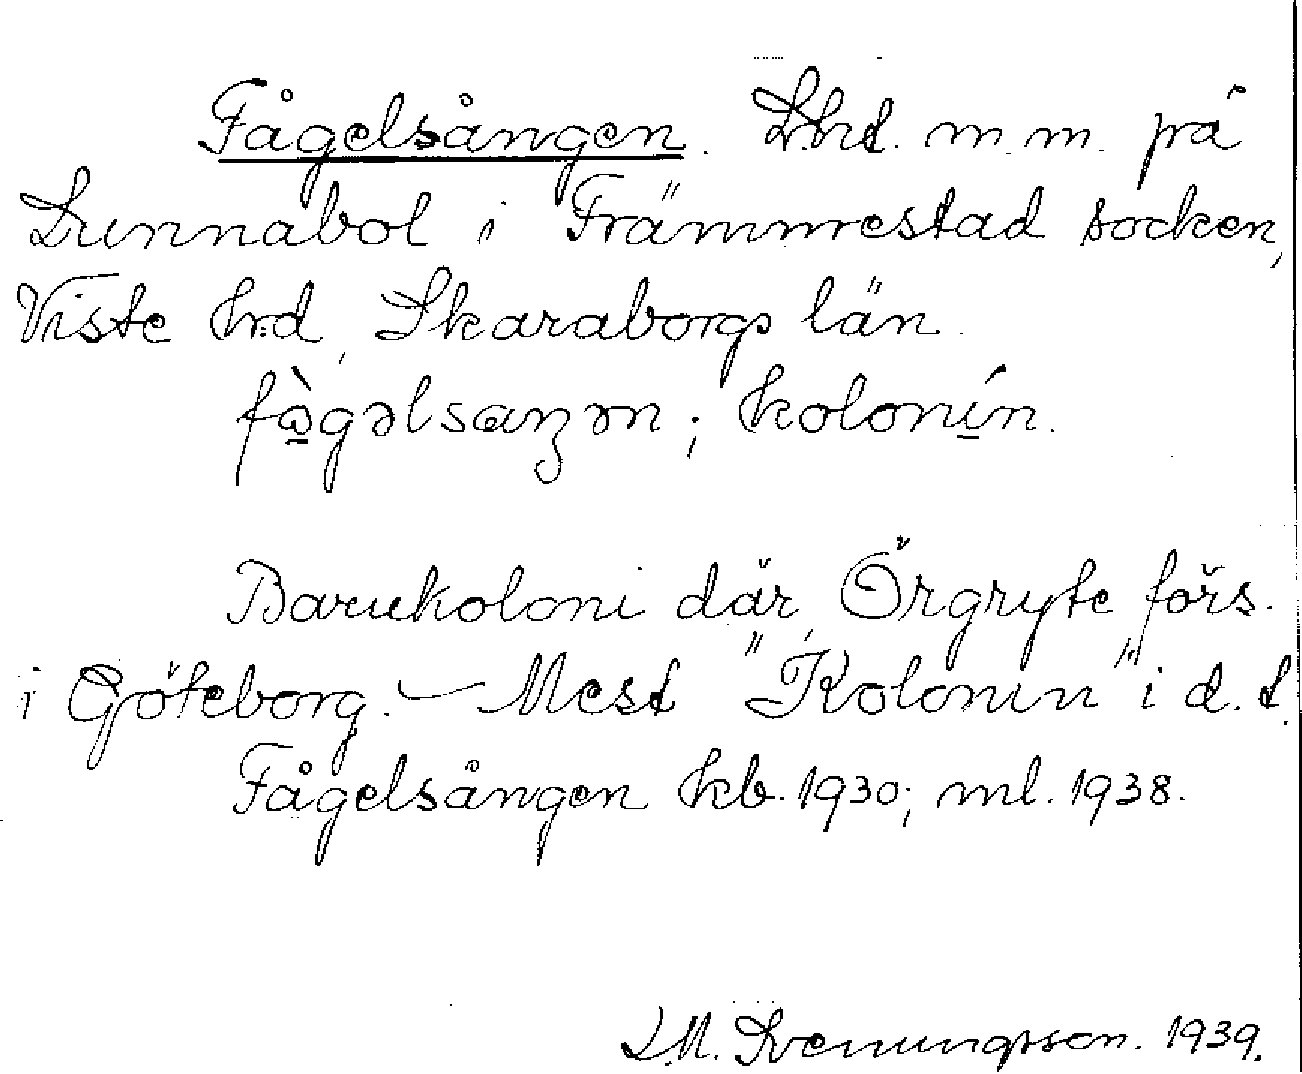 Fågelsången. Lht. m.m. på
Lunnabol i Främmestad socken,
Viste hrd, Skaraborgs län.
fò̲gəlsaŋən; koloní̲n.
Barnkoloni där, Örgryte förs.
i Göteborg. — Mest "Kolonin" i d.t.
Fågelsången kb. 1930; ml. 1938.
S.M. Svenungsson. 1939.